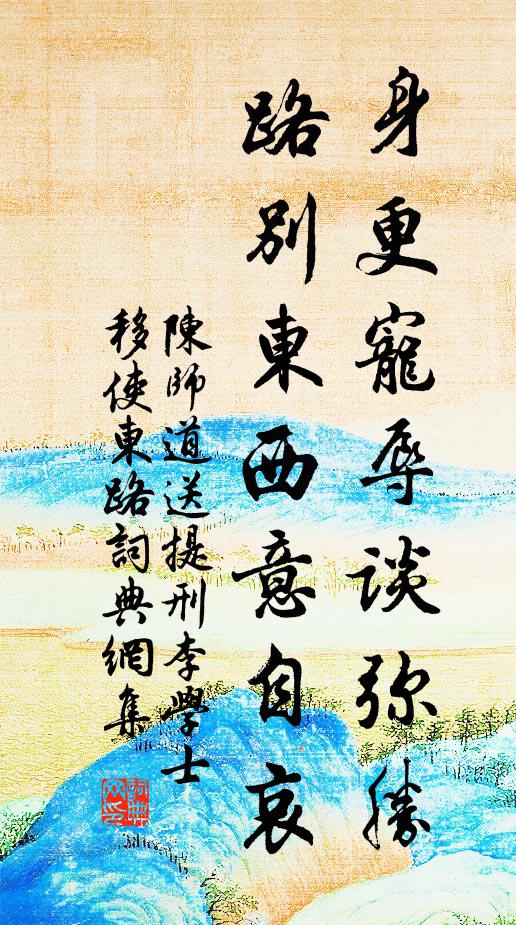 身更寵辱談彌勝
路別東西意自哀
陳師道送提刑李學士
移使東路詞典網集